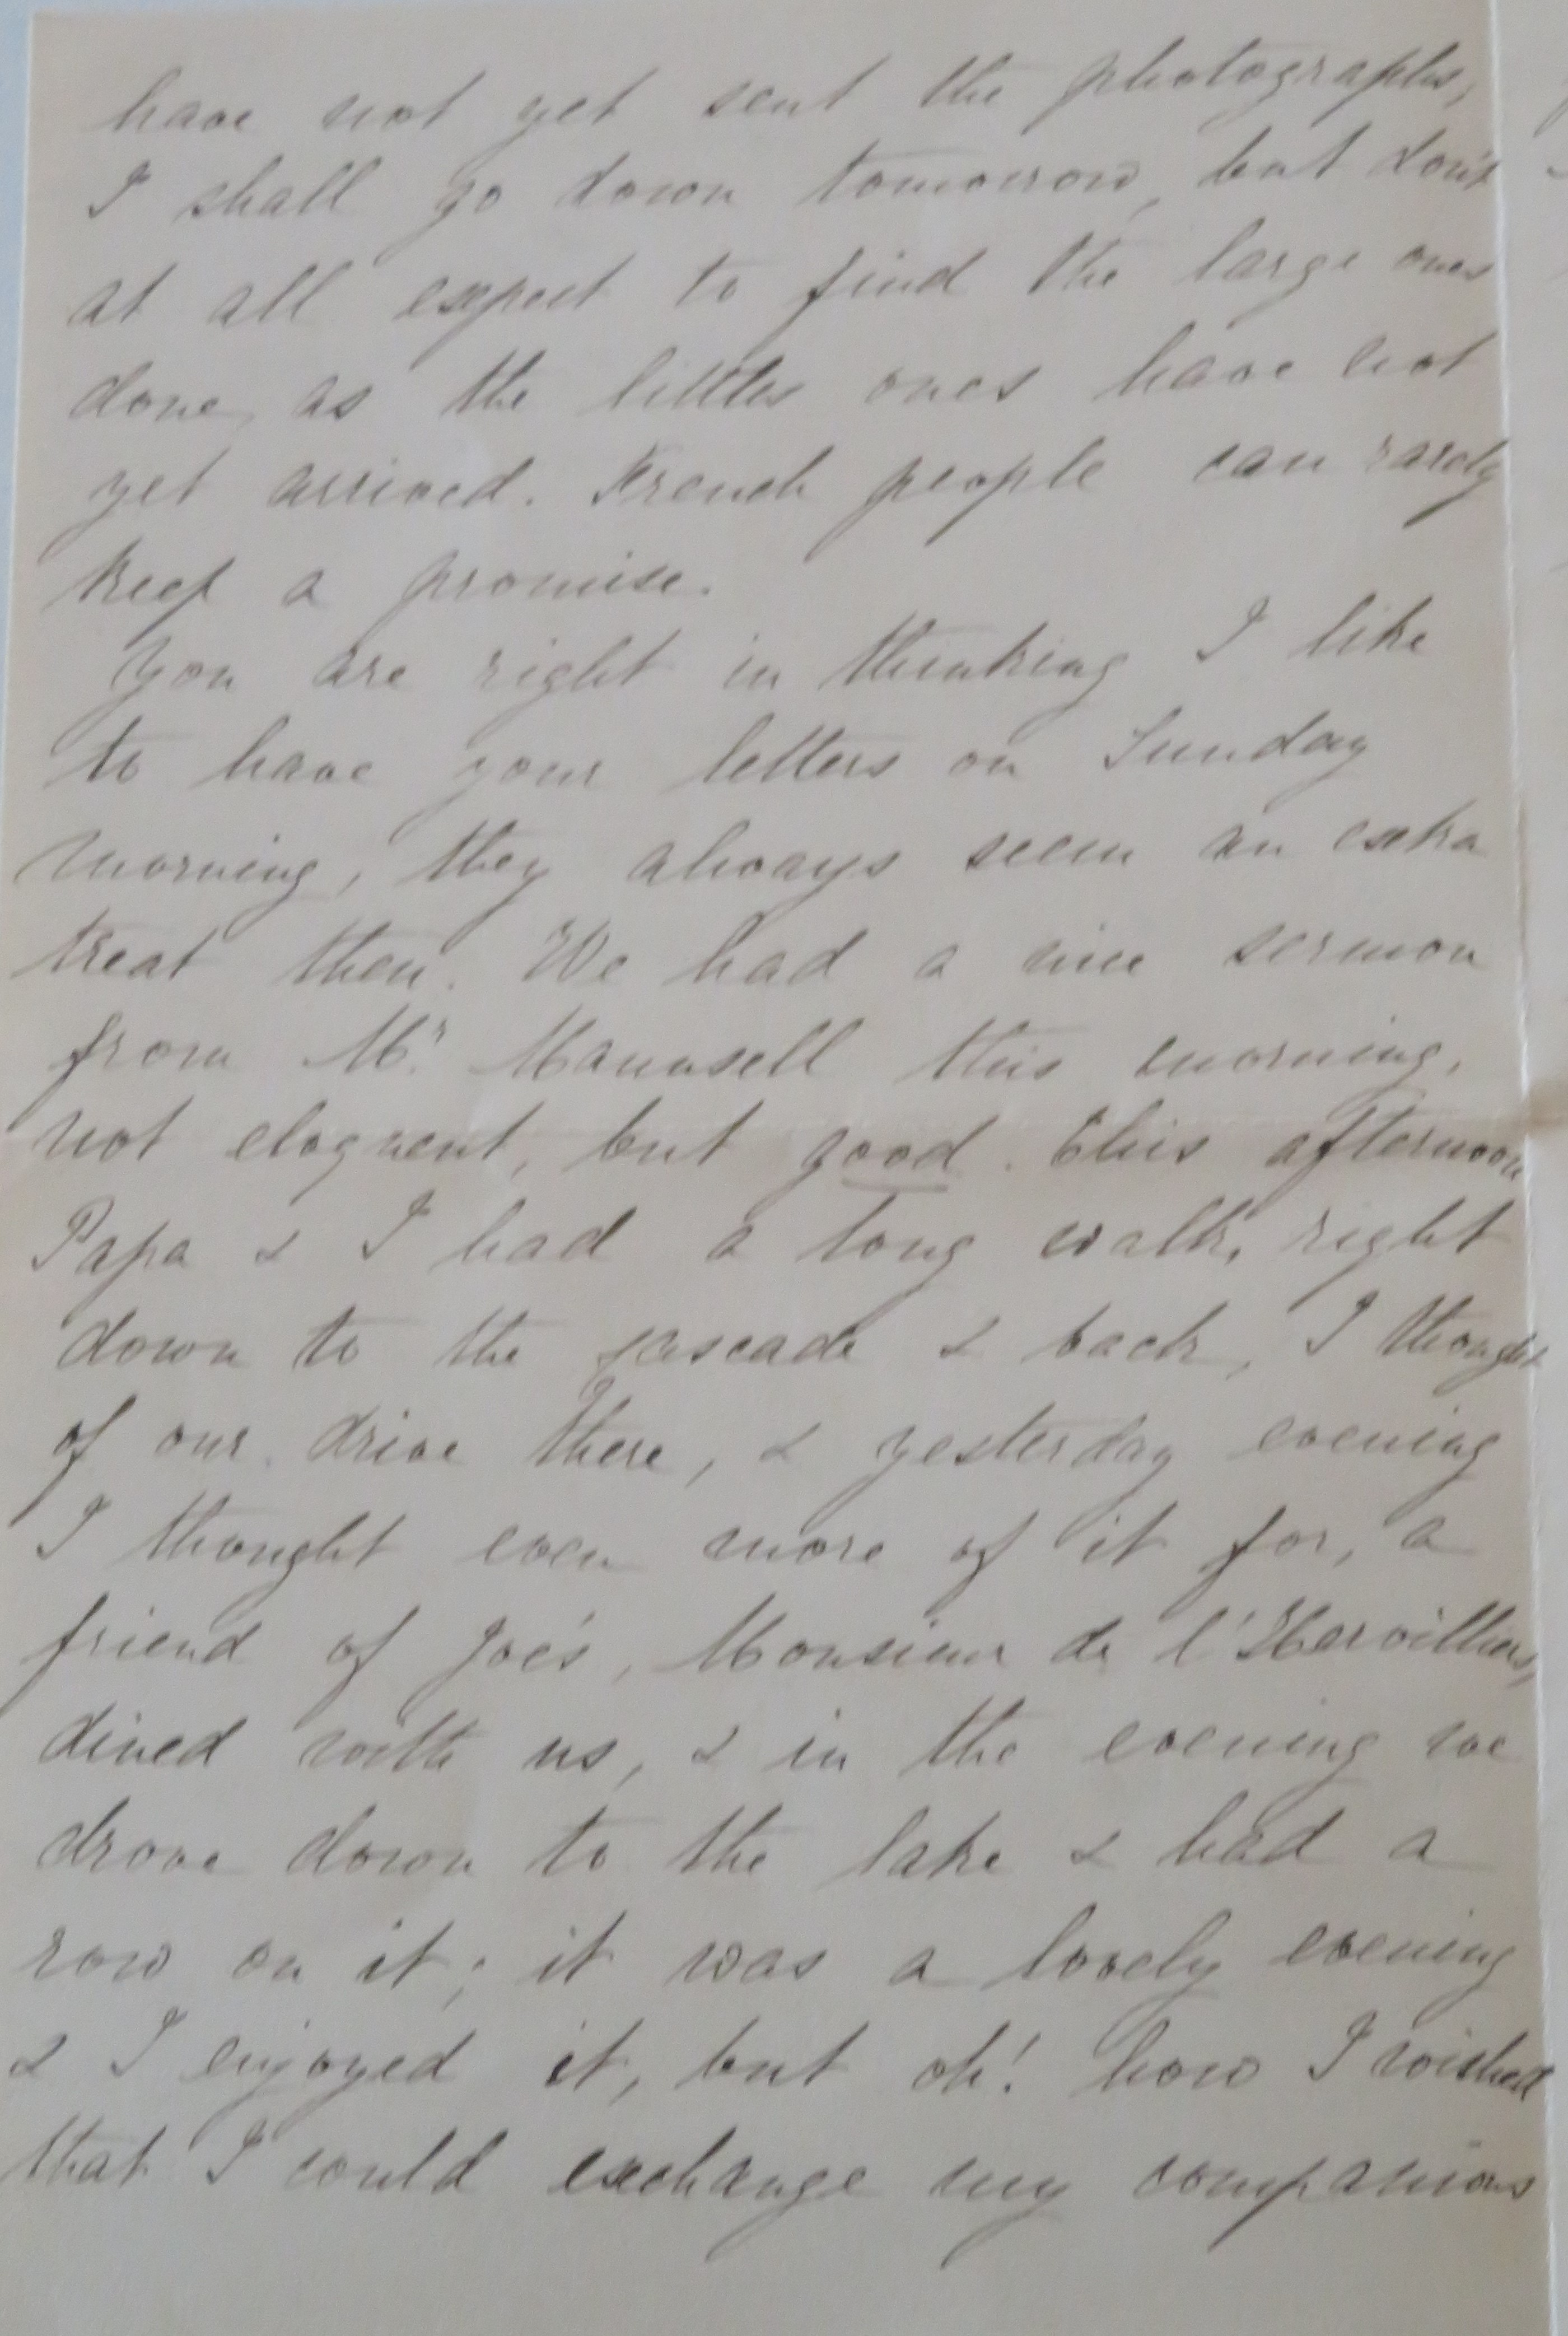 have not yet sent the photographs,
I shall go down tomorrow, but don't
at all expect to find the large ones
done, as the littles ones have not
yet arrived. French people can rarely
keep a promise.
You are right in thinking I like
to have your letters on Sunday
morning, they always seem an extra
treat then. We had a nice sermon
from Mr. Maunsell this morning,
not eloquent, but good. This afternoon
Papa & I had a long walk, right
down to the cascade & back, I thought
of our drive there, & yesterday evening
I thought even more of it for, a
friend of Joe's, Monsieur de l'Hervilliers,
dined with us, & in the evening we
drove down to the lake & had a
row on it; it was a lovely evening
& I enjoyed it, but oh! how I wished
that I could exchange my companions